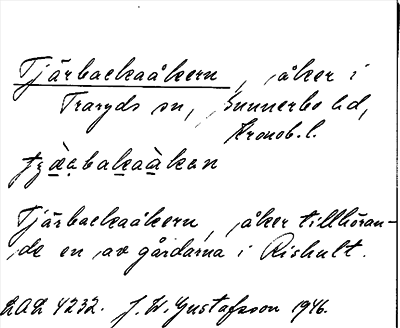 Tjärbackaåkern, åker i
Traryds sn, Sunnerbo hd,
Kronob. l.
Tjärbackaåkern, åker tillhöran-
de en av gårdarna i Rishult.
ULMA 4232. J. W. Gustafsson 1946.